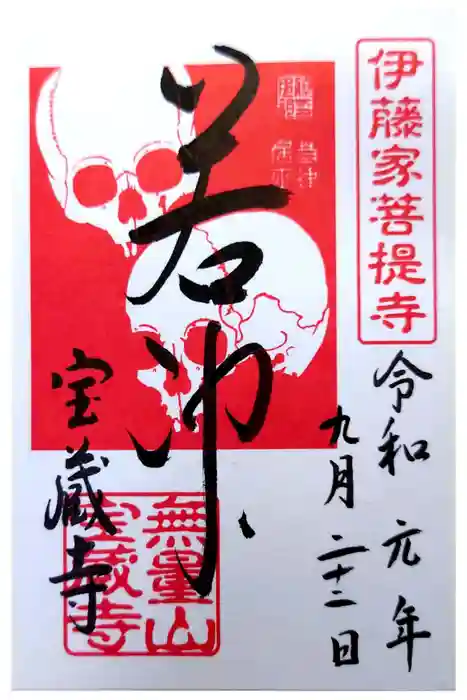 伊藤家菩提寺
令和元年
九月二十二日
若冲
宝蔵寺
無量山
宝蔵寺